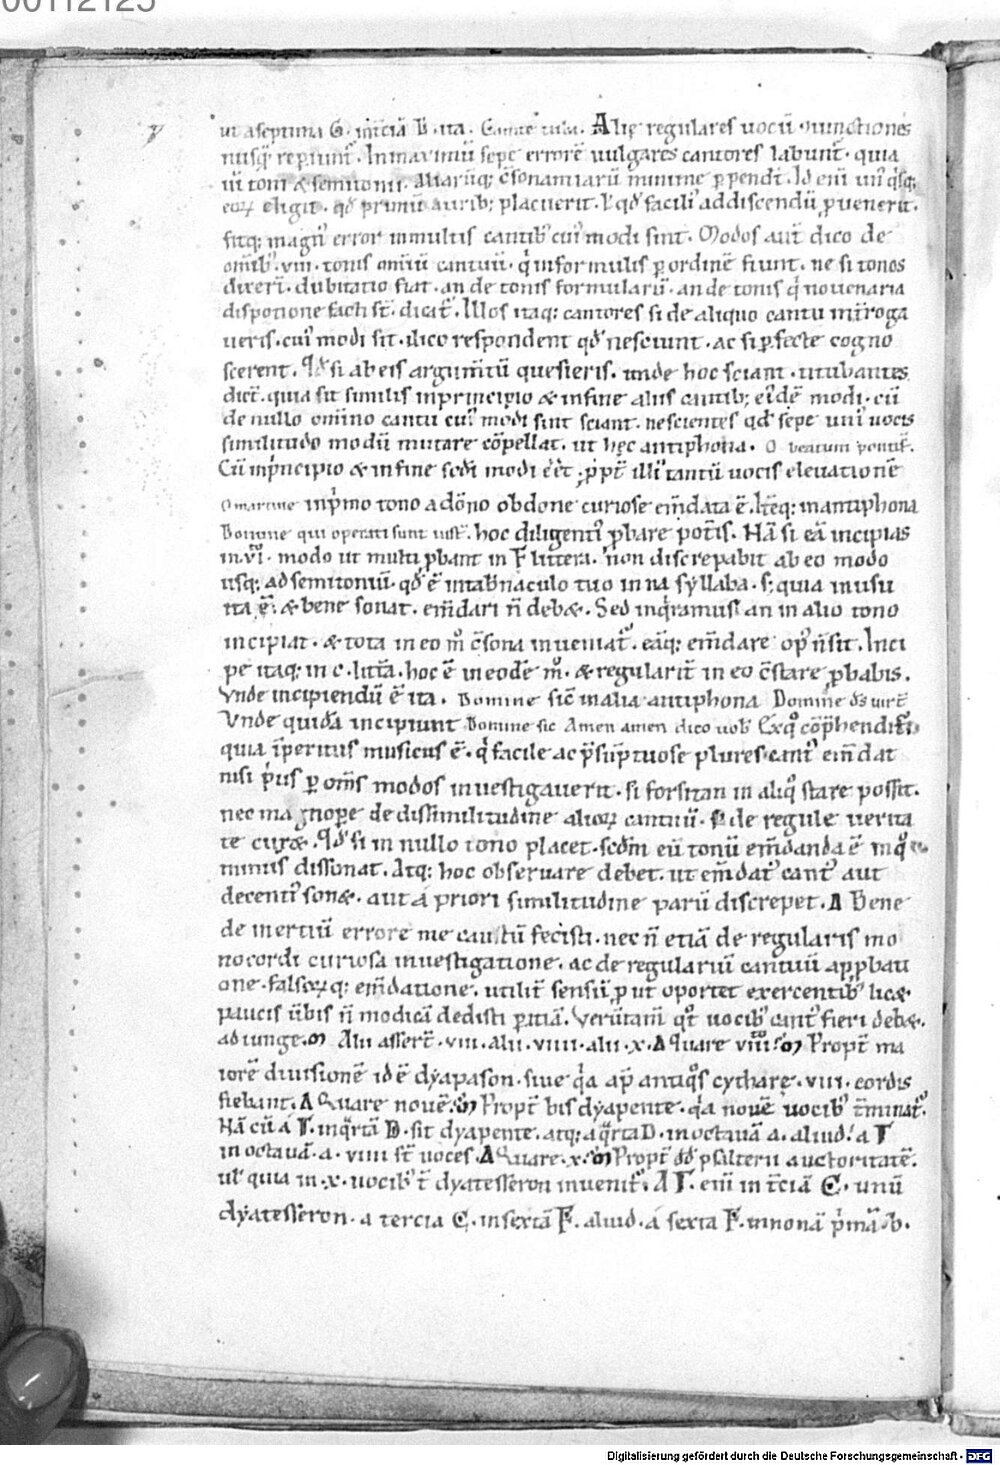 00112125
ut a septima G. in t̄ciā D. ita. Canite tuba. Alię regulares uocū niunctiones
nusq̄ reperiunt̄. In maximū sępe errorē uulgares cantores labunt̄. quia
uī toni & semitonii. aliarūq; c̄sonantiarū minime ꝑpendt̄. Id enī un̄ q̄sq;
eoꝝ eligit. qđ primū aurib; placuerit. ł qđ facili᾽ addiscendū ꝓuenerit.
fitq; magn᾽ error in multis cantib᾽ cui᾽ modi sint. Modos aut̄ dico de
om̄ib᾽. viii. tonis om̄iū cantuū. q̇ in formulis ꝑ ordinē fiunt. ne si tonos
dixerī. dubitatio fiat. an de tonis formularū. an de tonis q̇ nouenaria
dispotione facti st̄. dicat̄. Illos itaq; cantores si de aliquo cantu int̄roga
ueris. cui᾽ modi sit. ilico respondent qđ nesciunt. ac si ꝑfecte cogno
scerent. Qđ si ab eis argum̄tū quesieris. unde hoc sciant. titubantes
dict̄. quia sit similis in principio & in fine aliis cantib; ei᾽dē modi. cū
de nullo om̄ino cantu cui᾽ modi sint sciant. nescientes qđ sepe uni᾽ uocis
similitudo modū mutare cōpellat. ut hęc antiphona. O beatum pontif̄.
Cū in p̄ncipio & in fine scđi modi eēt. ꝓpt̄ illi᾽ tantū uocis eleuationē
O martine in p̄mo tono a dōno obdone curiose em̄data ē. It̄eq; in antiphona
Domine qui operati sunt iust̄. hoc diligenti᾽ ꝓbare pot̄is. Nā si eā incipias
in .vi. modo ut multi ꝓbant in F littera. non discrepabit ab eo modo
usq; ad semitoniū. qđ ē in tab̄naculo tuo in na syllaba. s; quia in usu
ita ē. & bene sonat. em̄dari n̄ deb&. Sed inq̇ramus an in alio tono
incipiat. & tota in eo m̊ c̄sona inueniat᾽. eāq; em̄dare op᾽ n̄ sit. Inci
pe itaq; in c. litt̄a. hoc ē in eodē m̊. & regularit̄ in eo c̄stare ꝓbabis.
Vnde incipiendū ē ita. Domine sic̄ in alia antiphona Domine ds̄ uirt̄
Vnde quidā incipiunt Domine sic Amen amen dico uob᾽ Ex q̊ cōp̄hendit᾽
quia īperitus musicus ē. q̇ facile ac p̄sūptuose plures cant᾽ em̄dat
nisi ṗus ꝑ om̄s modos inuestigauerit. si forsitan in aliq̊ stare possit.
nec magnopere de dissimilitudine alioꝝ cantuū. s; de regule uerita
te cur&. Qđ si in nullo tono placet. scđm eū tonū em̄danda ē in q̊
minus dissonat. Atq; hoc obseruare debet. ut em̄dat᾽ cant᾽ aut
decenti᾽ son&. aut a priori similitudine parū discrepet. Δ Bene
de inertiū errore me cautū fecisti. nec n̄ etiā de regularis mo
nocordi curiosa inuestigatione. ac de regulariū cantuū approbati
one. falsoꝝq; em̄datione. utilit̄ sensū ꝓut oportet exercentib᾽ lic&.
paucis u̇bis n̄ modicā dedisti ꝑitiā. Verūtam̄ q̊t uocib᾽ cant᾽ fieri deb&.
adiunge. M Alii assert̄. viii. alii. viiii. alii. x. Δ Quare viii? M Propt̄ ma
iorē diuisionē id ē dyapason. siue q̇a ap̄ antiq̊s cytharę. viii. cordis
fiebant. Δ Quare nouē. M Propt̄ bis dyapente. q̇a nouē uocib᾽ t̄minat᾽.
Nā cū a Γ. in q̄rtā D. sit dyapente. atq; a q̄rta D. in octauā a. aliud. a Γ
in octauā. a. viiii st̄ uoces. Δ Quare. x. M Propt̄ dđ psalterii auctoritatē.
uł quia in. x. uocib᾽ t̄ dyatesseron inuenit᾽. A Γ. enī in t̄ciā C. unū
dyatesseron. a tercia C. in sextā F. aliud. a sexta F. in nonā ṗmā. b.
Digitalisierung gefördert durch die Deutsche Forschungsgemeinschaft - DFG